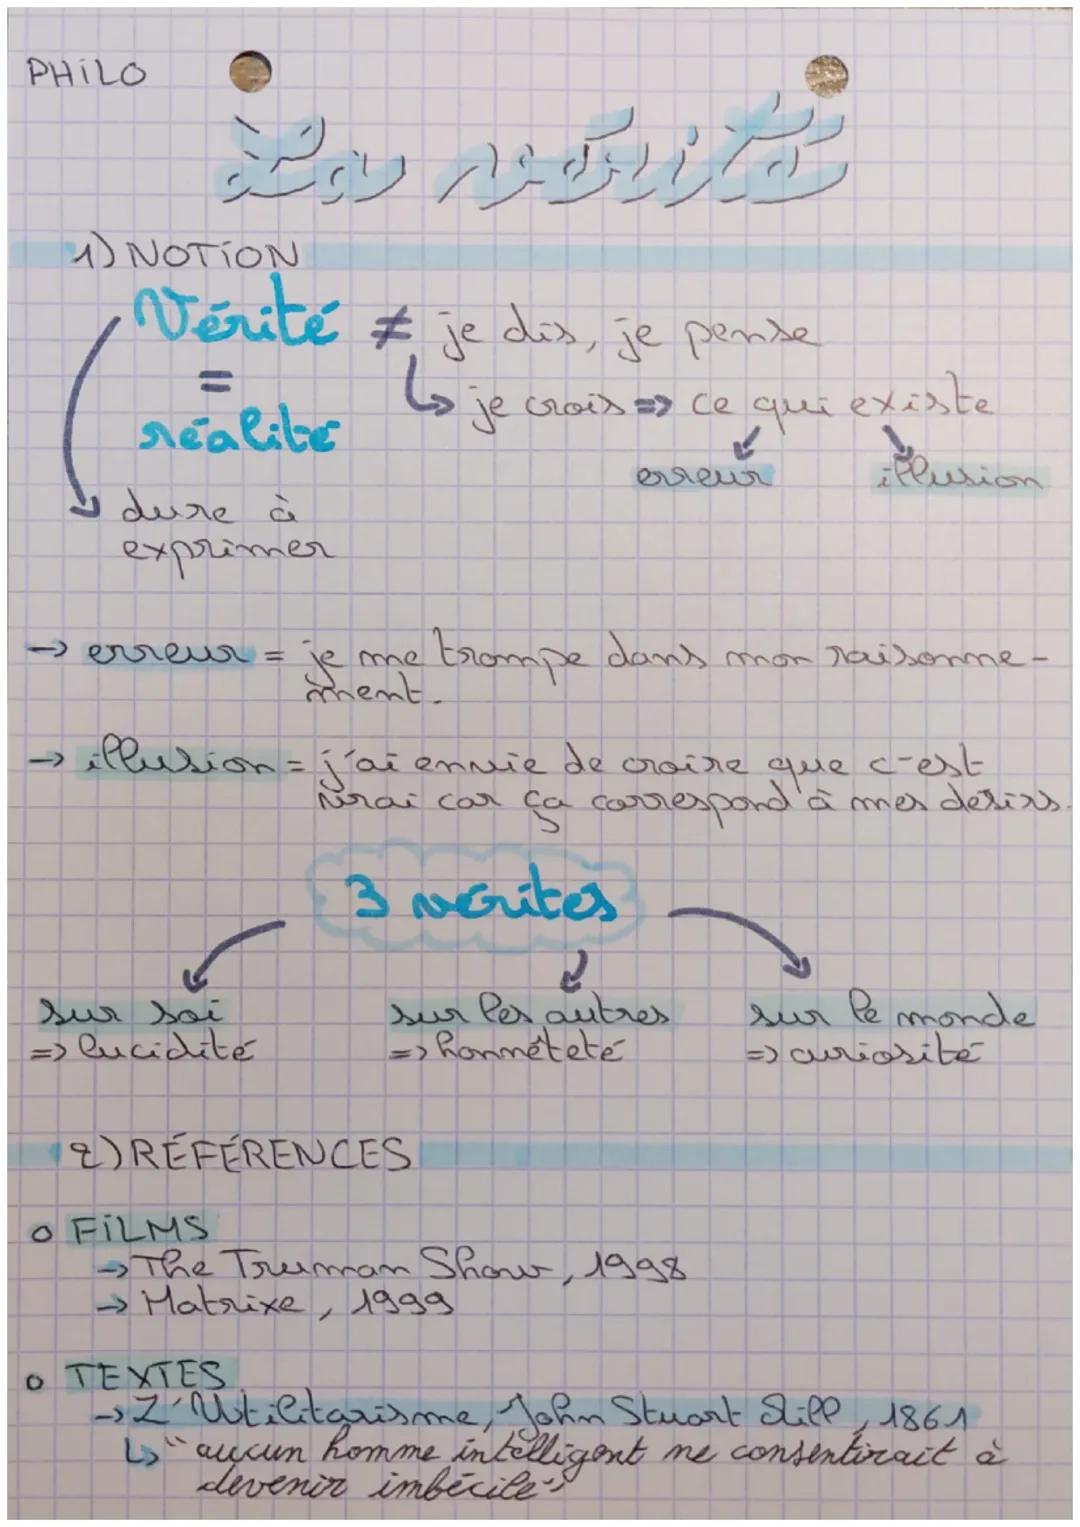 PHILO
1) NOTION
Vérité ≠ je dis, je pense
= ↳ je crois => ce qui existe
réalité
erreur illusion
dure à
exprimer
→ erreur = je me trompe dans mon raisonne-
ment.
→ illusion = j'ai envie de croire que c'est
vrai car ça correspond à mes désirs.
3 vérités
sur soi sur les autres sur le monde
=> lucidité => honnêteté => curiosité
2) RÉFÉRENCES
o FILMS
→ The Truman Show, 1998
→ Matrixe, 1999
o TEXTES
→ L'Utilitarisme, John Stuart Mill, 1861
↳ "aucun homme intelligent ne consentirait à
devenir imbécile"